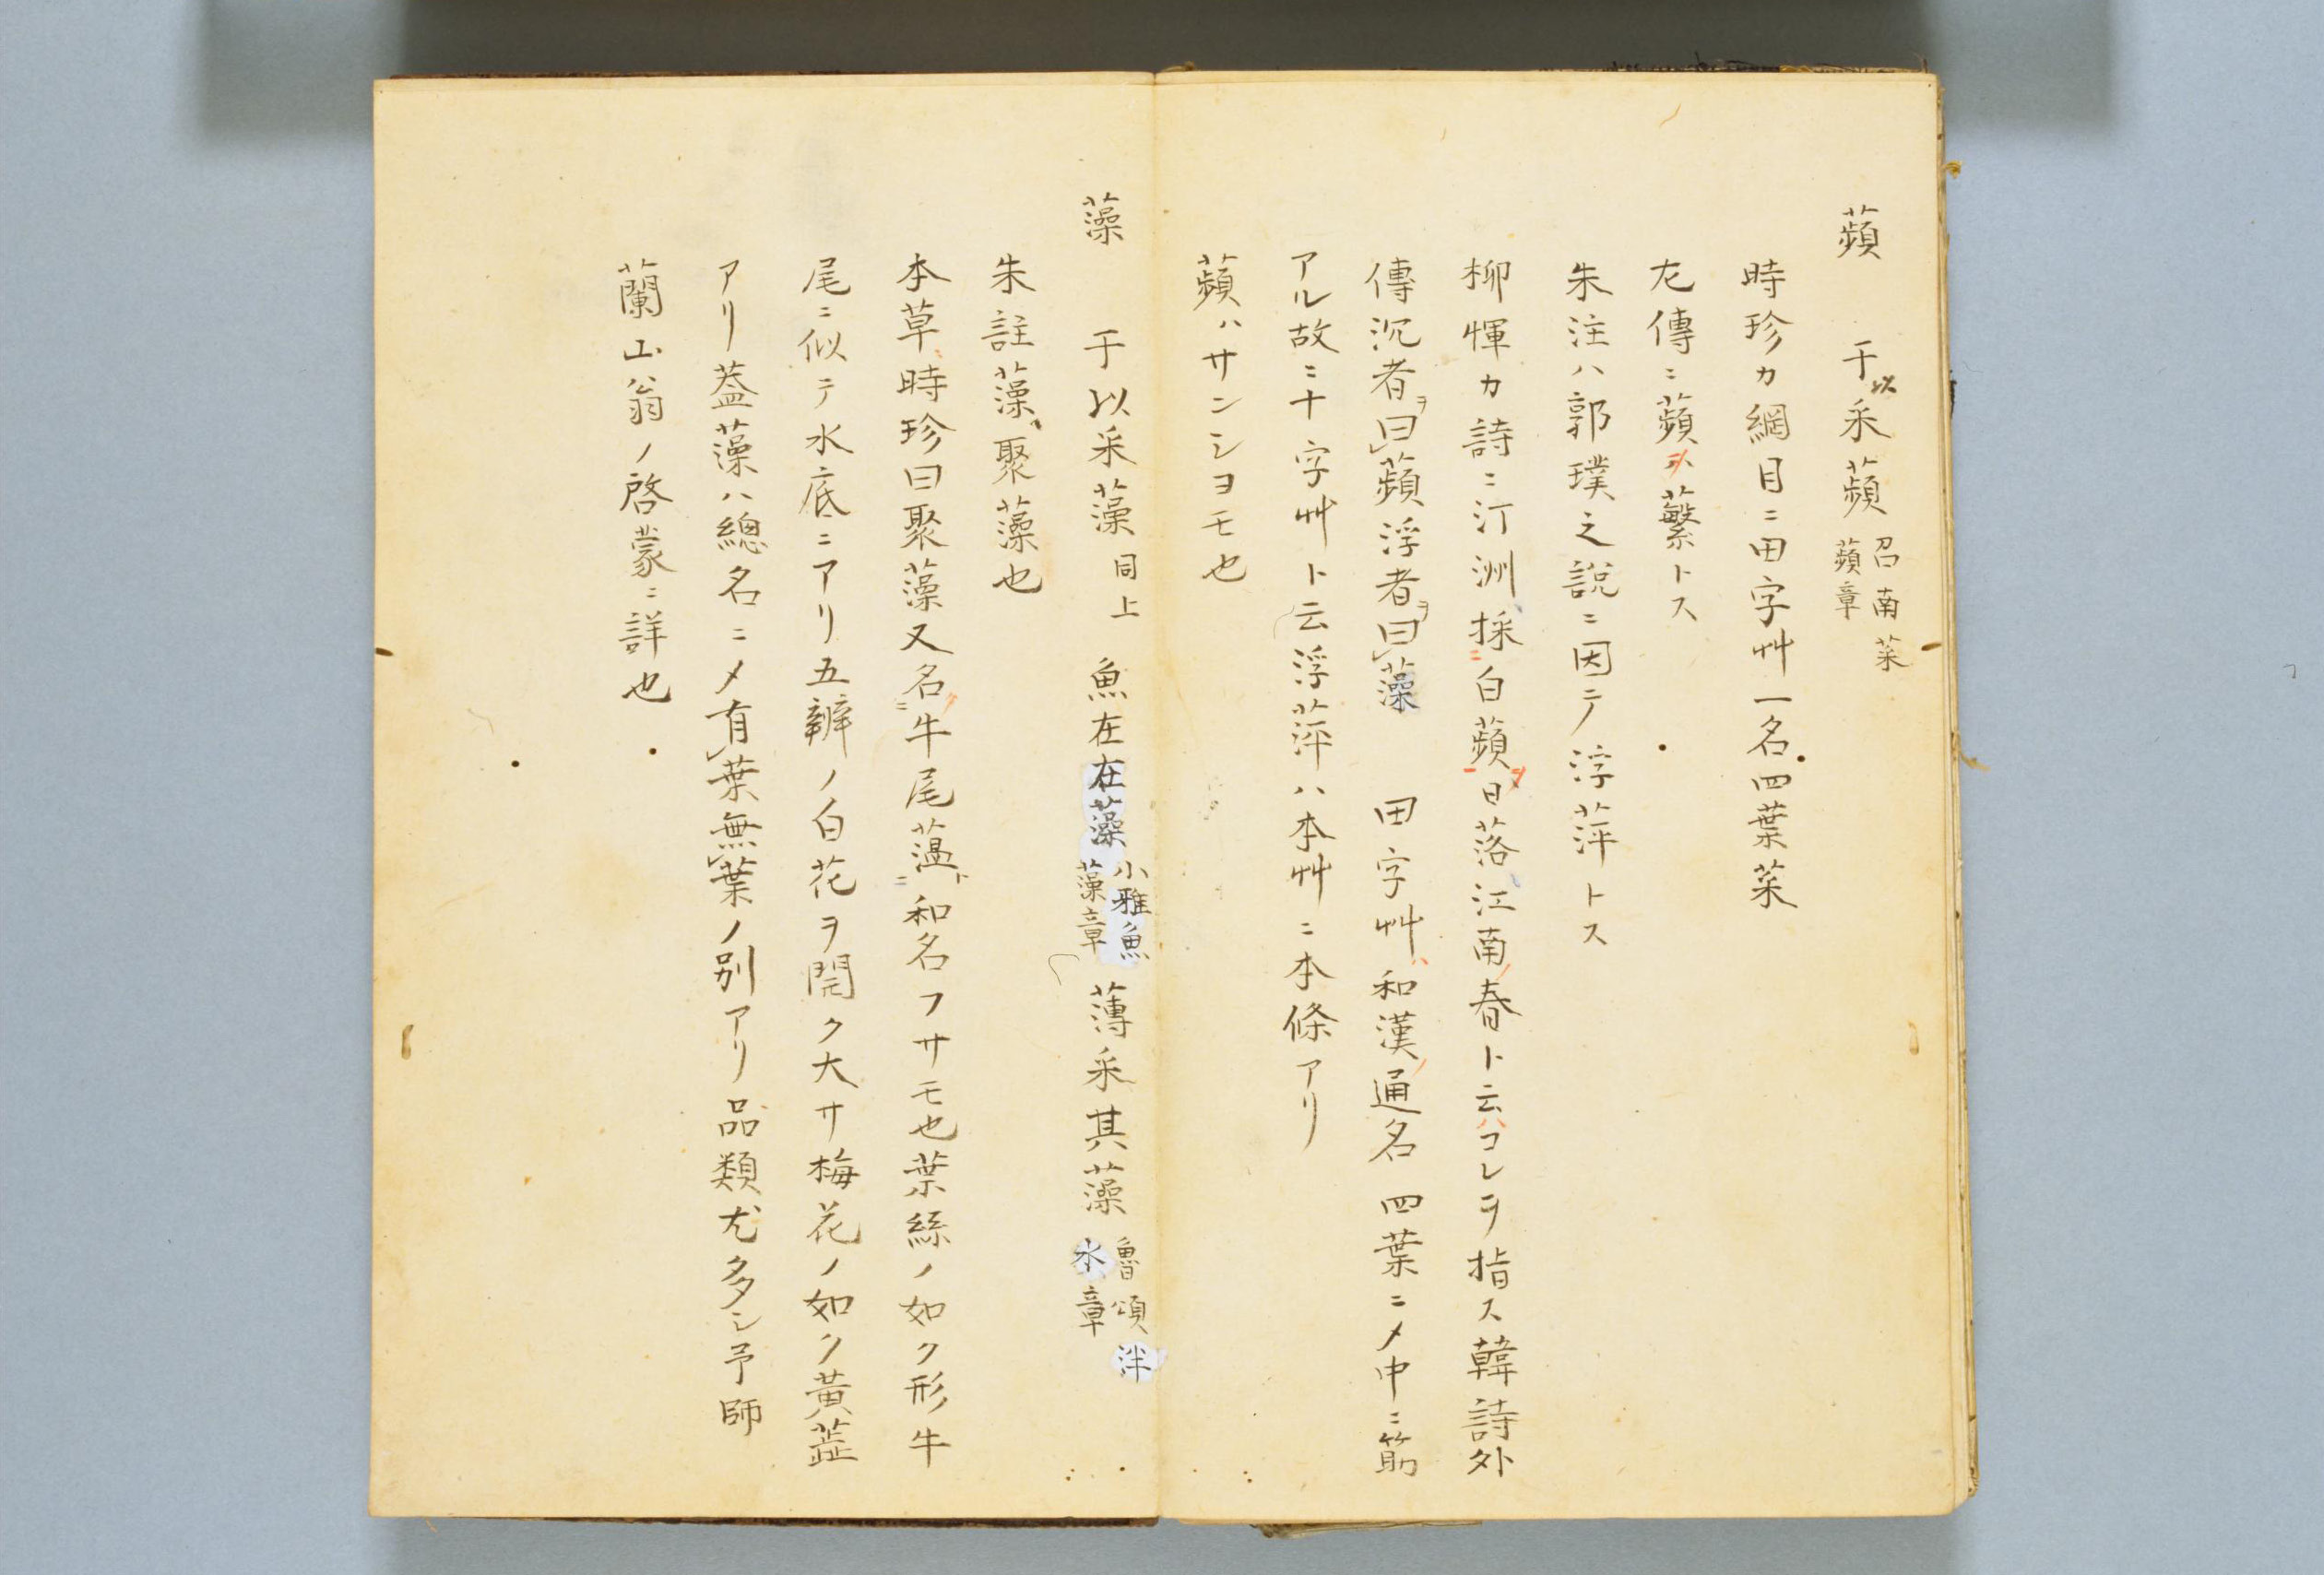 蘋　于以采蘋 召南菜蘋章
時珍カ綱目ニ田字艸一名四葉菜
尤傳ニ蘋ハ蘩トス
朱注ハ郭璞之說ニ因テ浮萍トス
柳惲カ詩ニ汀洲採白蘋日落江南春ト云ハコレヲ指ス韓詩外
傳沉者ヲ曰蘋浮者ヲ曰藻　田字艸ハ和漢ノ通名四葉ニメ中ニ筋
アル故ニ十字艸ト云浮萍ハ本艸ニ本條アリ
蘋ハサンシヨモ也
藻　于以采藻 同上　魚在在藻 小雅魚藻章　薄采其藻 魯頌泮水章
朱註藻聚藻也
本草時珍曰聚藻又名牛尾薀ト和名フサモ也葉絲ノ如ク形牛
尾ニ似テ水底ニアリ五瓣ノ白花ヲ開ク大サ梅花ノ如ク黃蕋
アリ葢藻ハ總名ニメ有葉無葉ノ別アリ品類尤多シ予師
蘭山翁ノ啓蒙ニ詳也